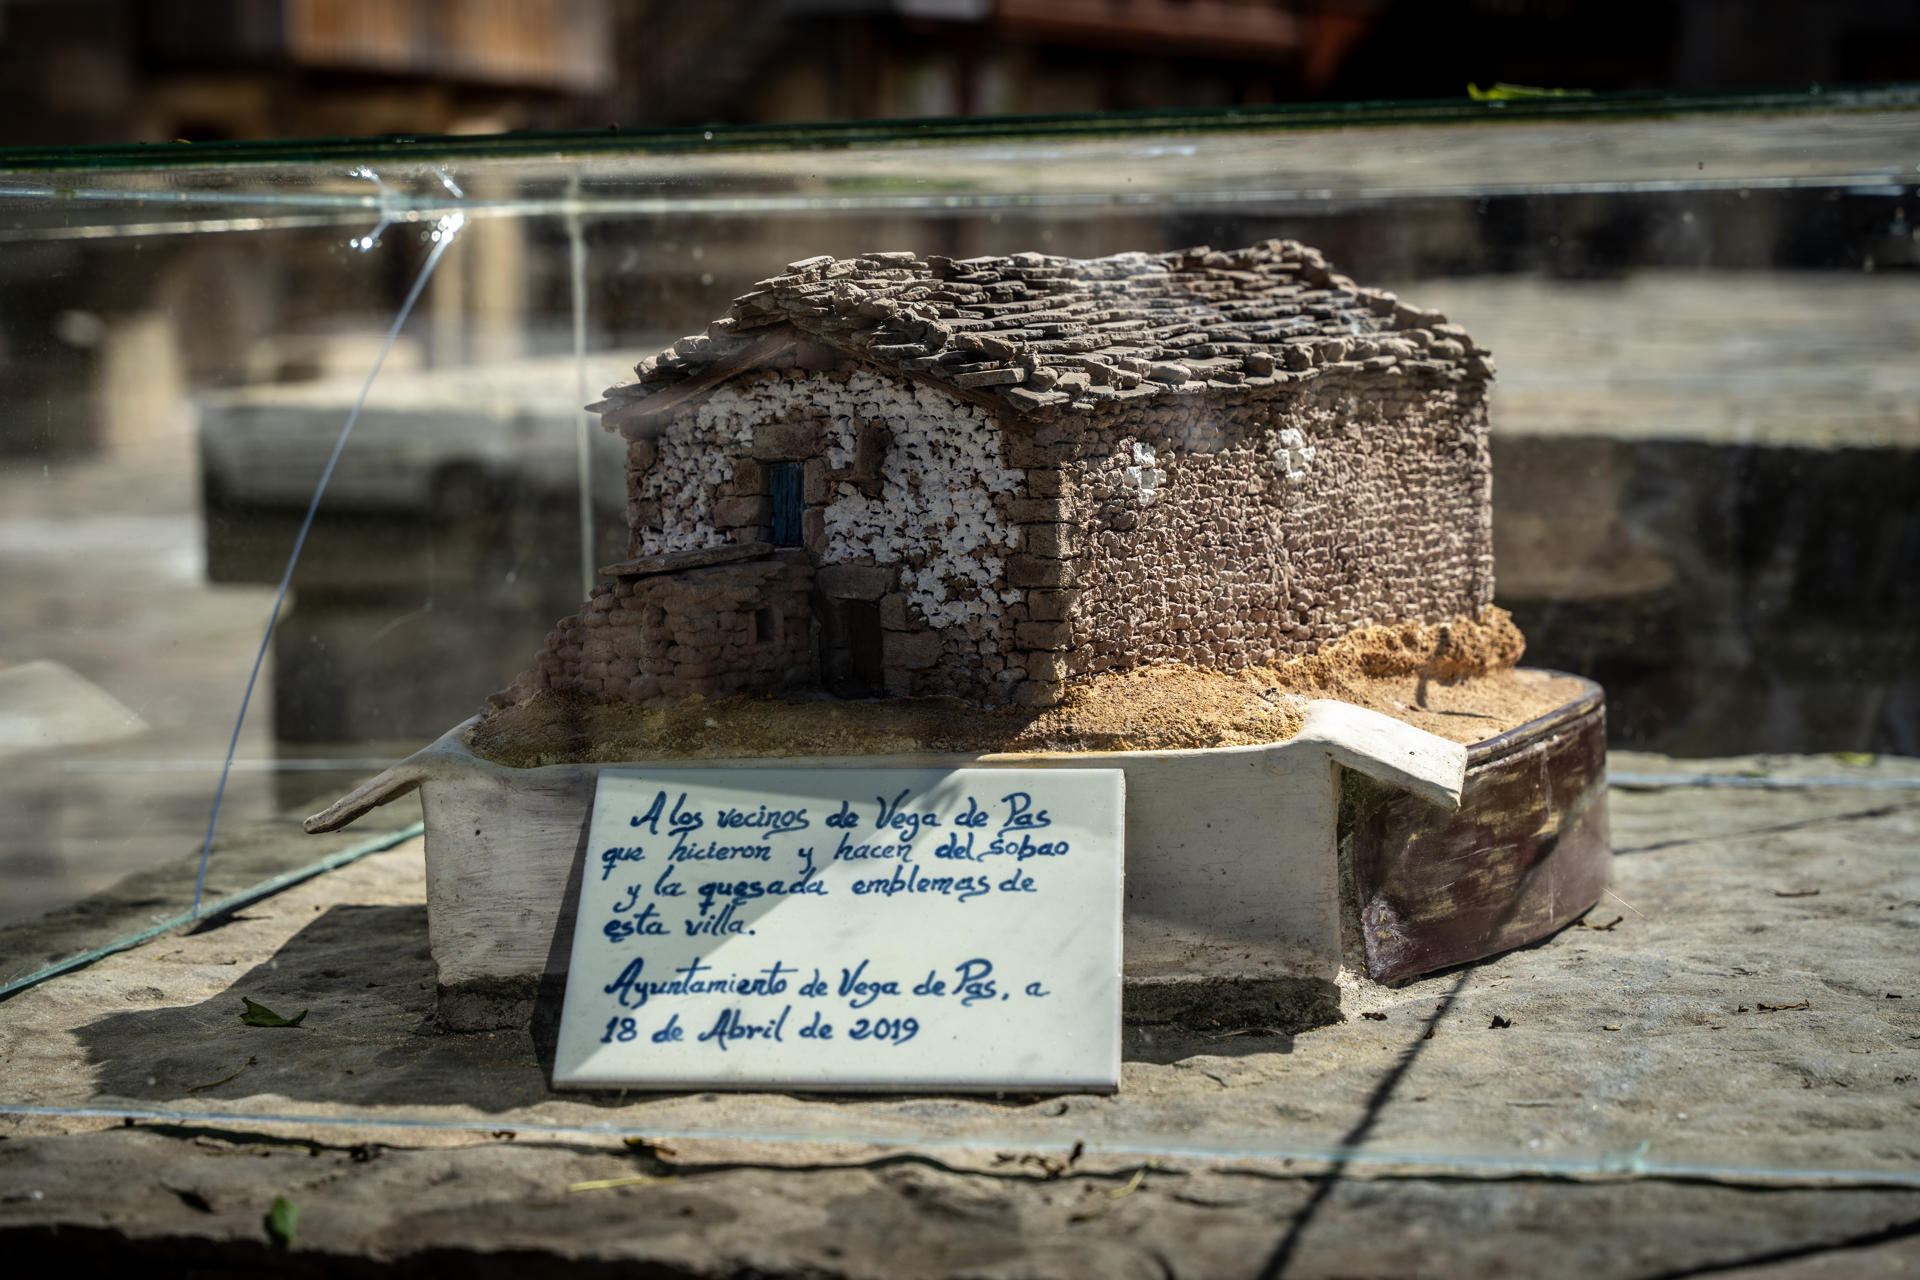 A los vecinos de Vega de Pas
que hicieron y hacen del sobao
y la quesada emblemas de
esta villa.
Ayuntamiento de Vega de Pas, a
18 de Abril de 2019